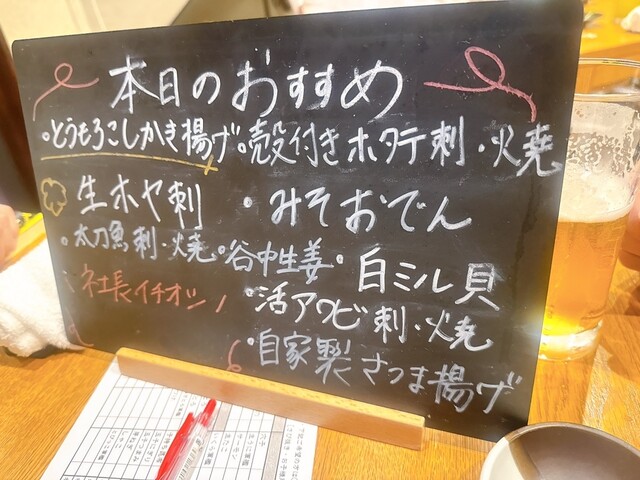 本日のおすすめ
・とうもろこしかき揚げ ・殻付きホタテ刺・焼
生ホヤ刺 ・みそおでん
・太刀魚刺・焼 ・谷中生姜 ・白ミル貝
社長イチオシ! ・活アワビ刺・焼
・自家製さつま揚げ